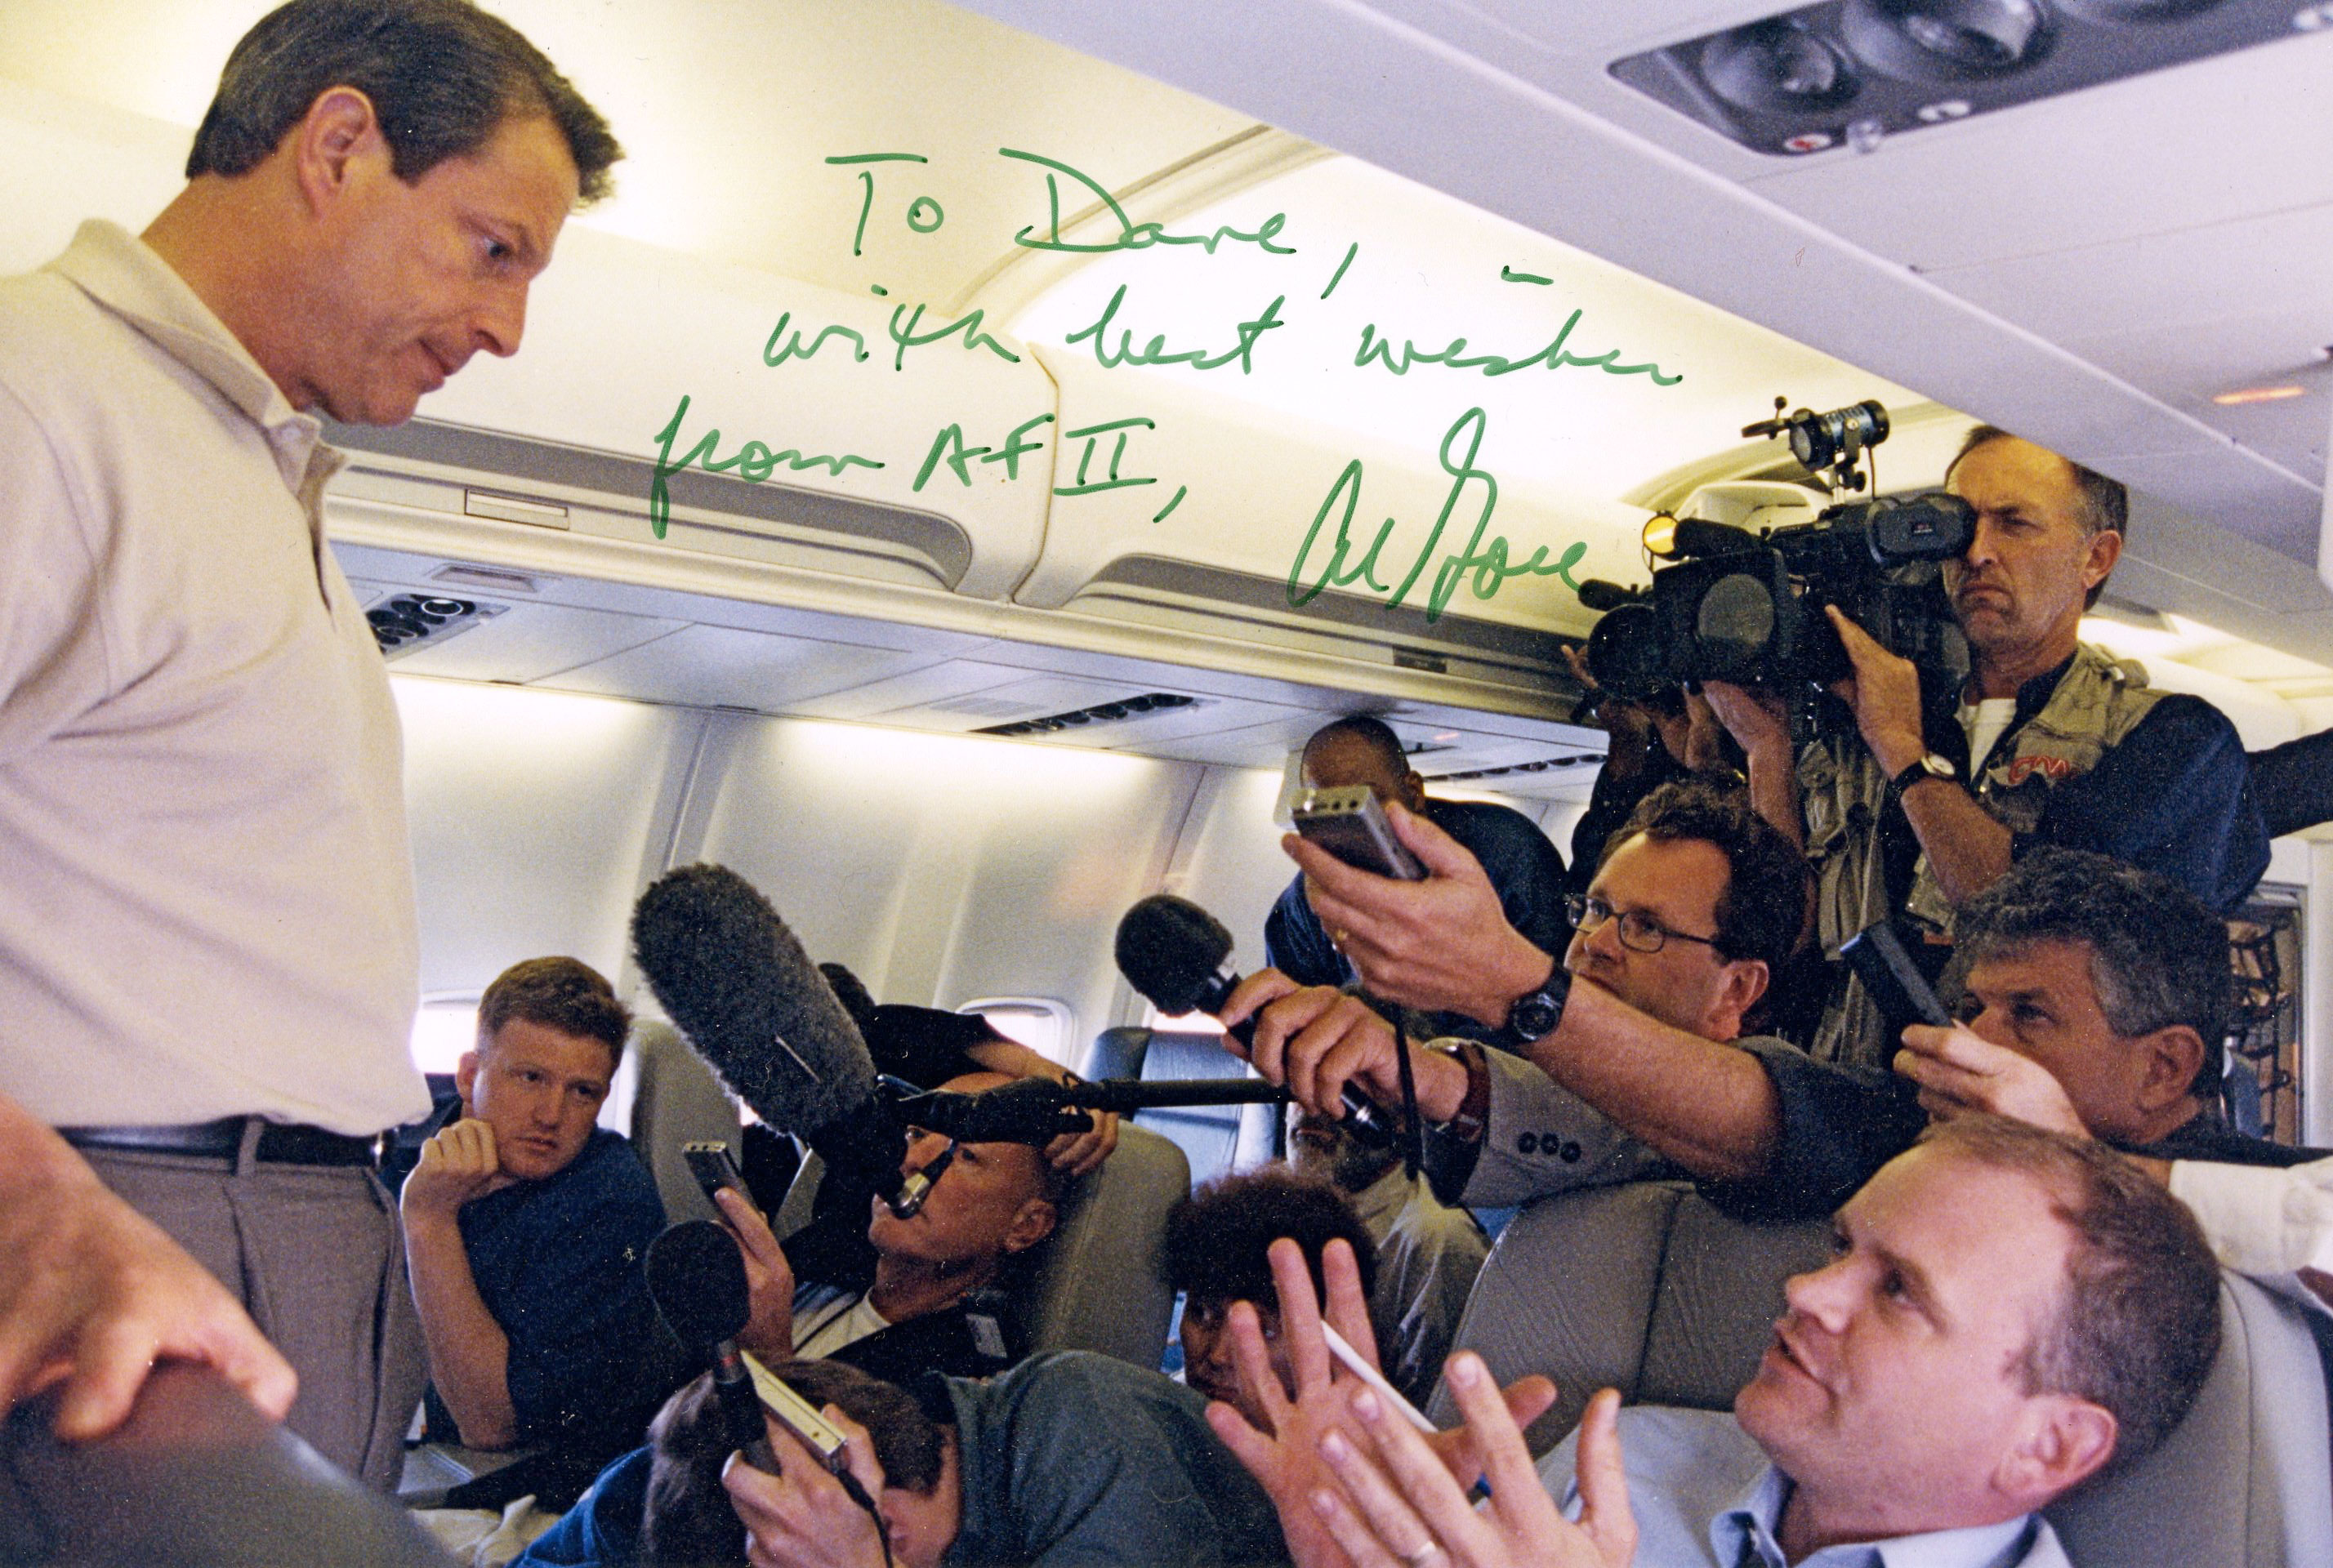 To Dave,
with best wishes
from AF II,
Al Gore
CNN